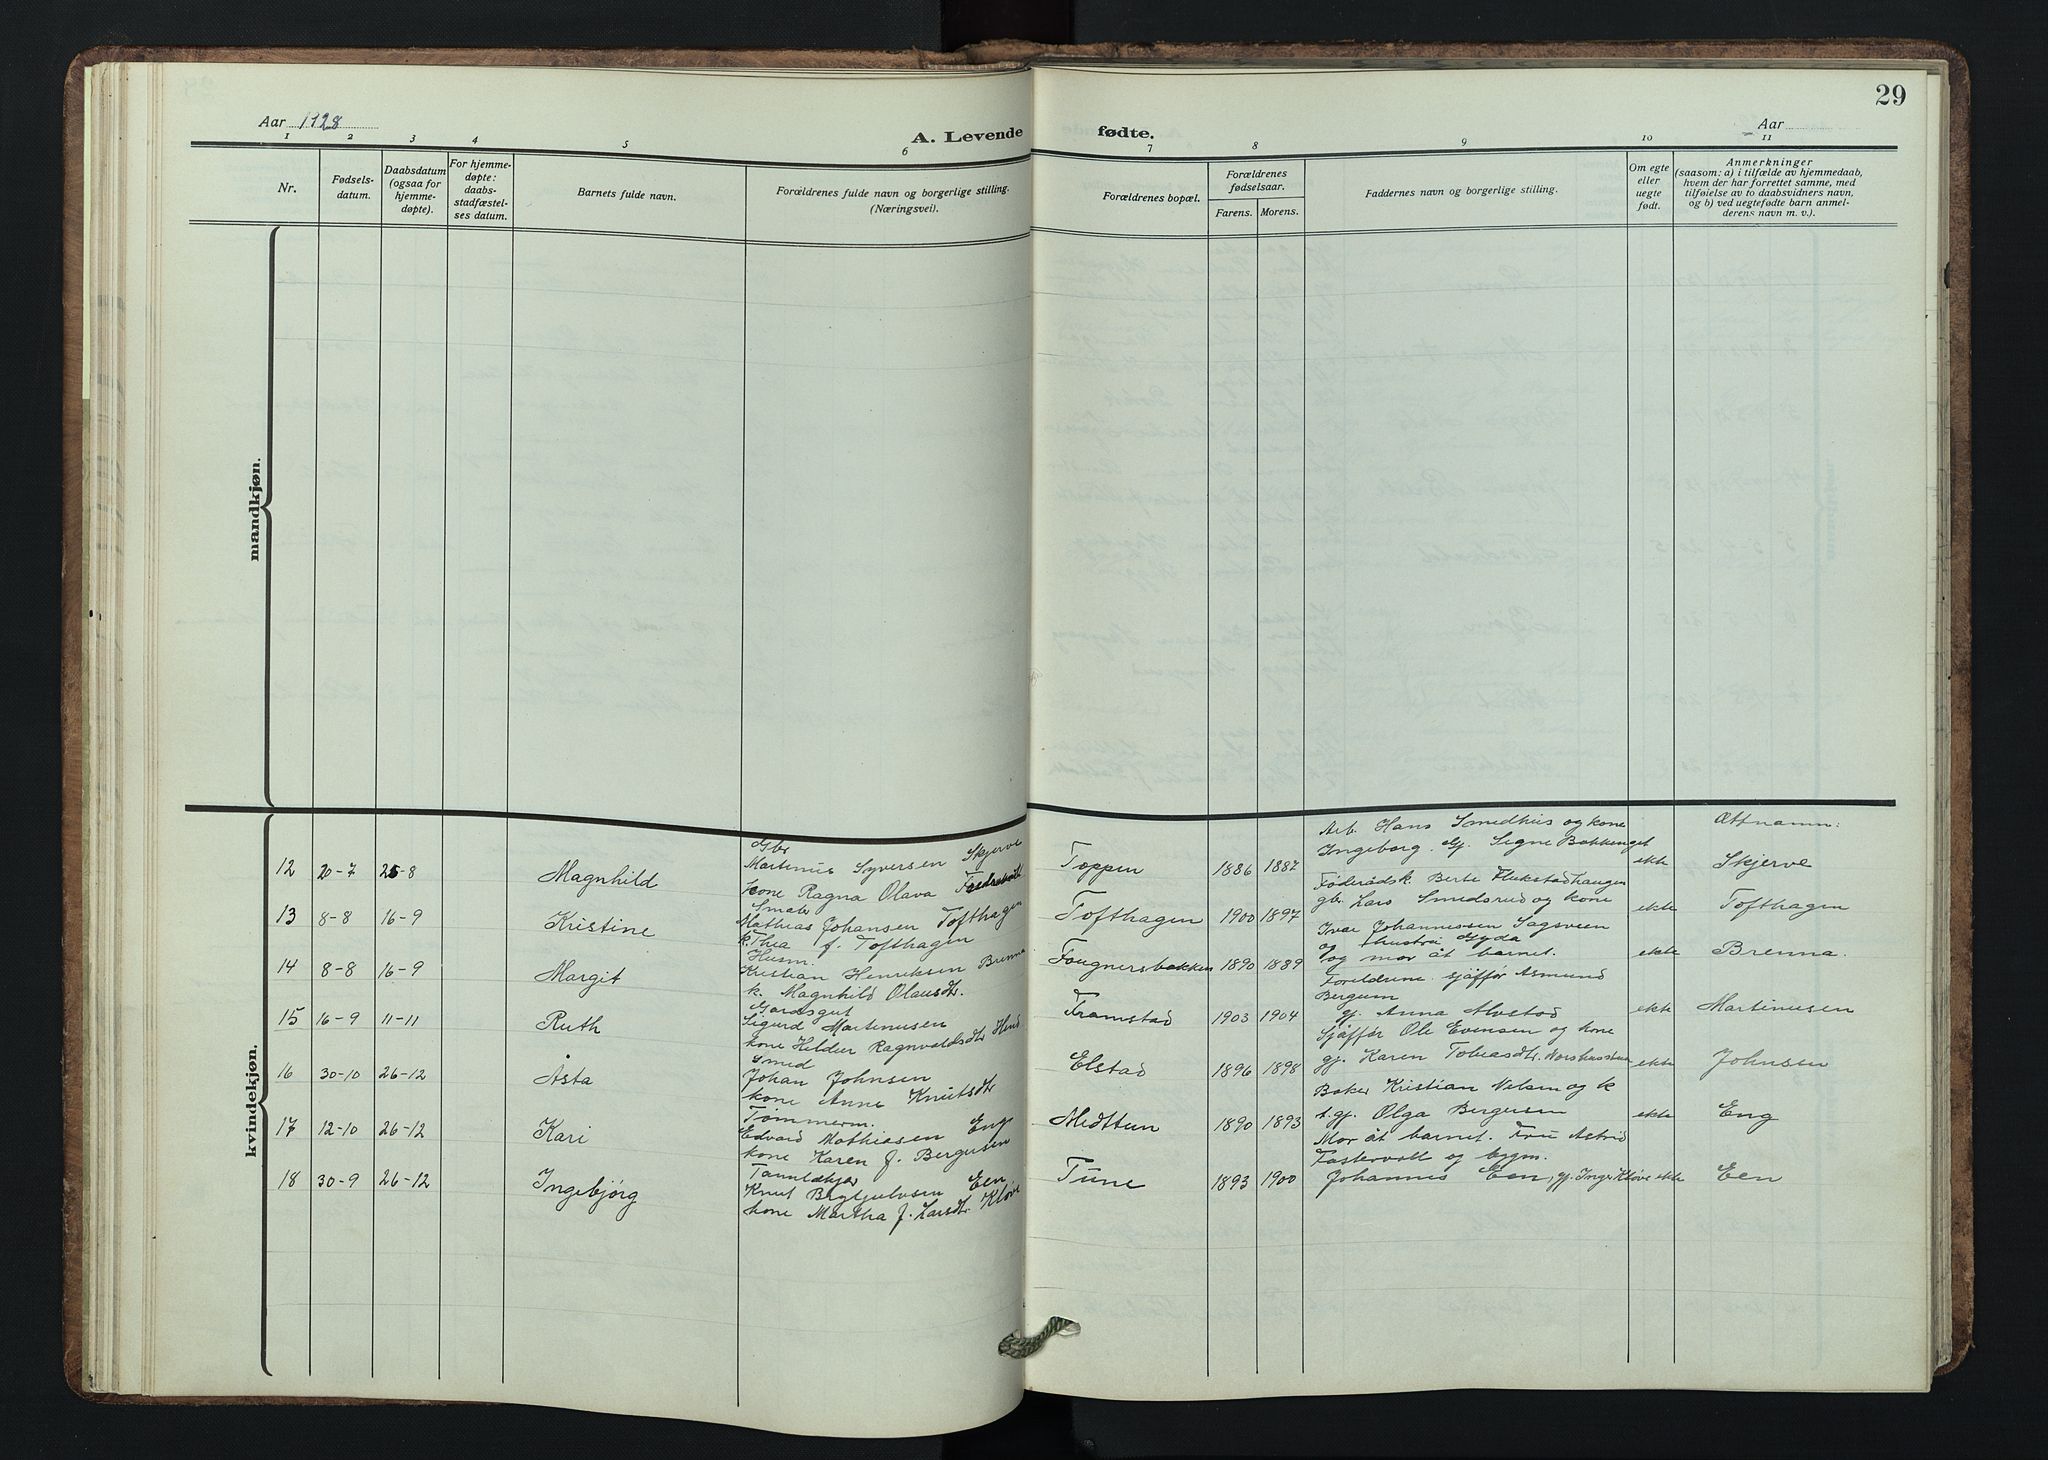 29
Aar 1928
A. Levende fødte.
Aar
1 2 3 4 5 6 7 8 9 10 11
Nr.
Fødsels-
datum.
Daabsdatum
(ogsaa for
hjemme-
døpte).
For hjemme-
døpte:
daabs-
stadfæstel-
ses datum.
Barnets fulde navn.
Forældrenes fulde navn og borgerlige stilling.
(Næringsvei).
Forældrenes bopæl.
Forældrenes
fødselsaar.
Farens. Morens.
Faddernes navn og borgerlige stilling.
Om egte
eller
uegte
født.
Anmerkninger
(saasom: a) i tilfælde av hjemmedaab,
hvem der har forrettet samme, med
tilføielse av to daabsvidners navn,
og b) ved uegtefødte barn anmel-
derens navn m. v.).
mandkjøn.
kvindekjøn.
Ættnamn:
12 20-7 25-8 Magnhild
Gbr
Martinus Syversen Skjerve
kone Ragna Olava
Toppen 1886 1887
Arb. Hans Smedhus og kone
Ingeborg. Gj. Signe Bakkenget
ekte Skjerve
13 8-8 16-9 Kristine
Smabr
Mathias Johansen Tofthagen
k. Thea f. Tofthagen
Tofthagen 1900 1897
Føderådsk. Berte Flukstadhaugen
gbr. Lars Smedsrud og kone
ekte Tofthagen
14 8-8 16-9 Margit
Husm.
Kristian Henriksen Brenna
k. Magnhild Olausdtr.
Fougnersbakken 1890 1889
Ivar Johannessen Sagsveen
og hustru Gyda
og mor åt barnet.
ekte Brenna.
15 16-9 11-11 Ruth
Gardsgut
Sigurd Martinusen
kone Hildur Ragnvaldsdtr
Framstad 1903 1904
Foreldrene. sjåffør Asmund
Bergum
gj. Anna Alvstad
ekte Martinusen
16 30-10 26-12 Åsta
Smed
Johan Johnsen
kone Anne Knutsdtr
Elstad 1896 1898
Sjåffør Ole Evensen og kone
gj. Karen Tobiasdtr.
ekte Johnsen
17 12-10 26-12 Kari
Tømmerm.
Edvard Mathiasen Eng
kone Karen f. Bergersen
Medttun 1890 1893
Baker Kristian Nelsen og k
t. gj. Olga Bergersen
ekte Eng
18 30-9 26-12 Ingebjørg
Tannlækjar
Knut Brytjulvsen Een
kone Martha f. Larsdtr. Kløve
Tune 1893 1900
Mor åt barnet. Fru Astrid
Fastervoll og bygm.
Johannes Een, gj. Inger Kløve
ekte Een